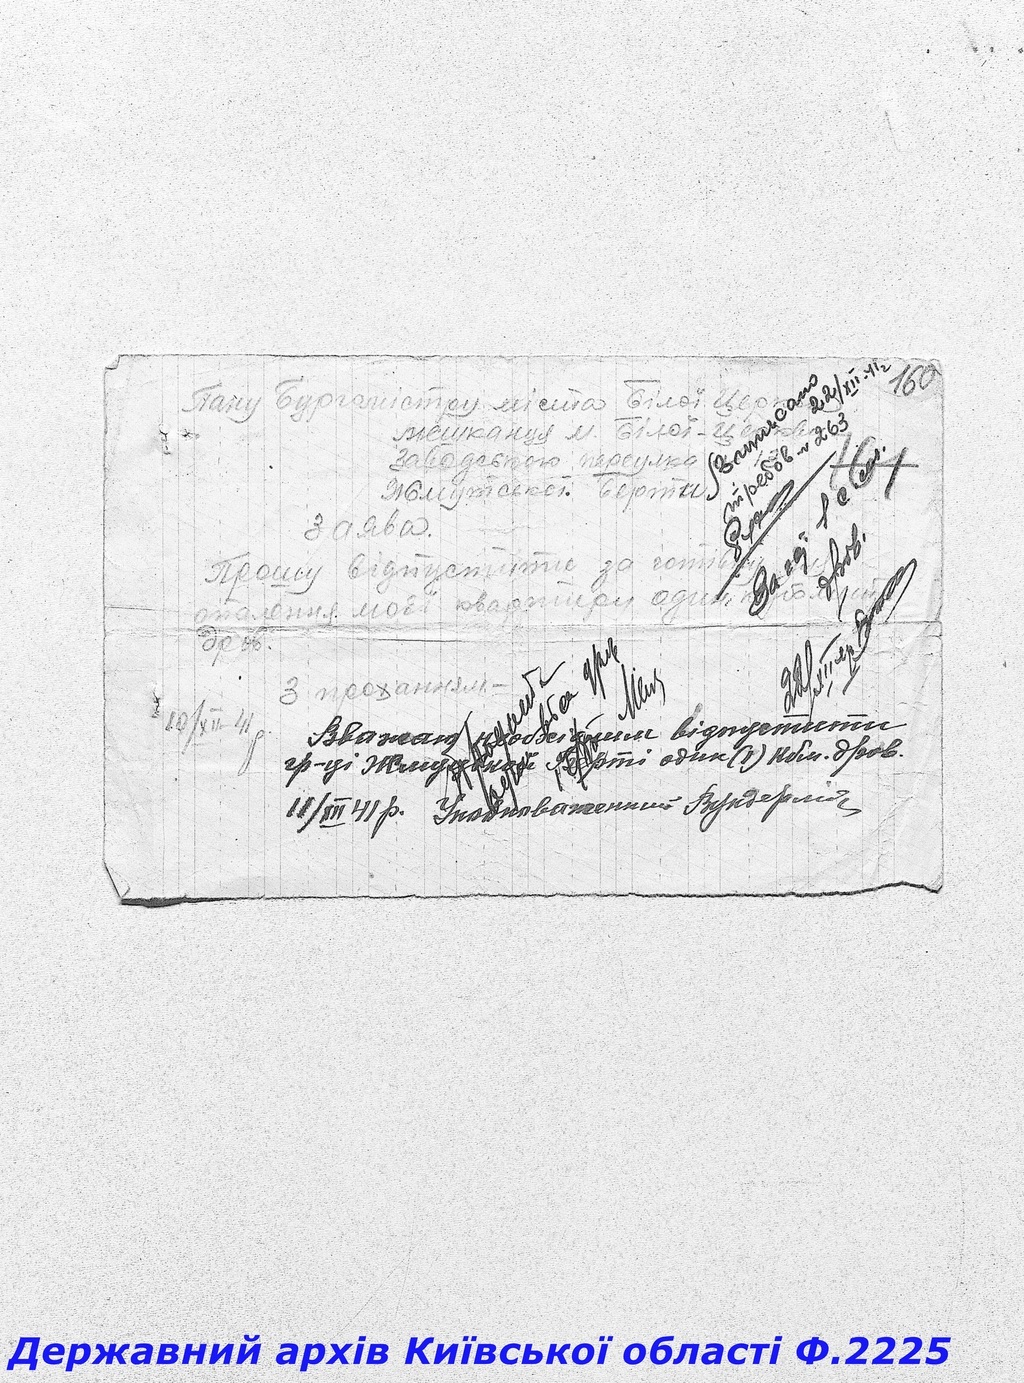 160
Пану Бургомістру міста Білої Церкви
мешканця м. Білої-Церкви
Заводського переулка
Жмутської Берти
Заява.
Прошу відпустити за готівку
опалення моєї квартири один кубометр
дров.
З проханням
10/XII 41 р.
Вважаю необхідним відпустити
гр-ці Жмудській Берті один (1) кбм. дров.
11/XII 41 р. Уповноважений Вундерліх
Выписано
22/XII-41 г
требов. № 263
161
дров.
22/XII 41 р
Державний архів Київської області Ф.2225